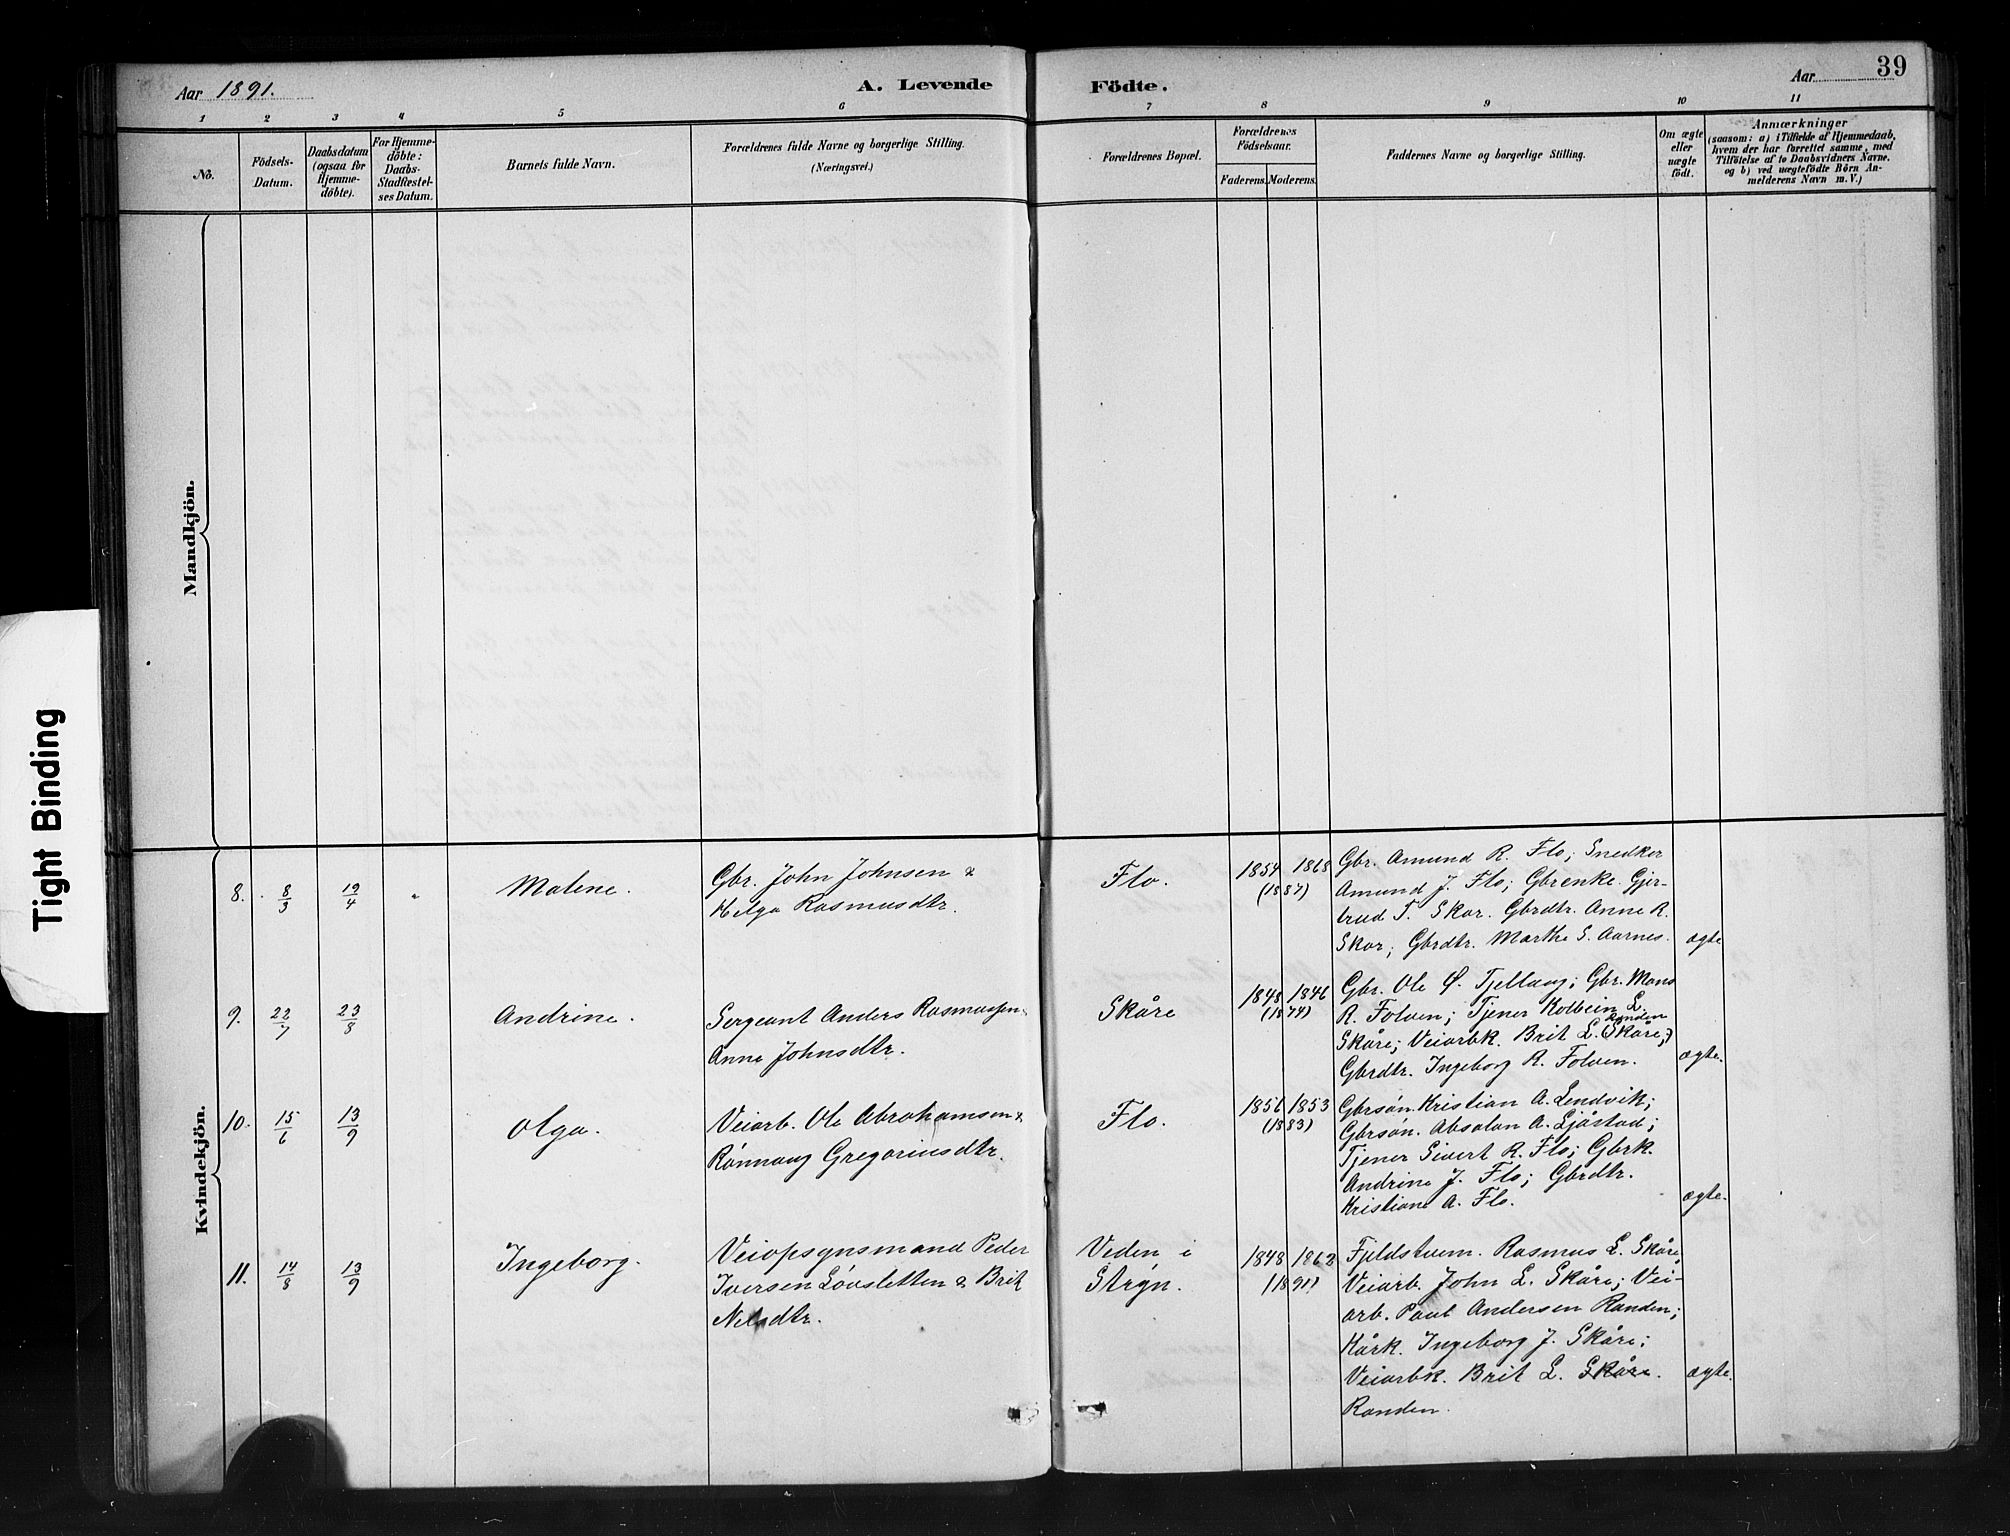 Tight Binding
Aar 1891.
A. Levende
Födte.
Aar
39
1 2 3 4 5 6 7 8 9 10 11
No.
Födsels-
Datum.
Daabsdatum
(ogsaa for
Hjemme-
döbte).
For Hjemme-
döbte:
Daabs-
Stadfæstel-
ses Datum.
Barnets fulde Navn.
Forældrenes fulde Navne og borgerlige Stilling.
(Næringsvei.)
Forældrenes Bopæl.
Forældrenes
Födselsaar.
Faderens. Moderens.
Faddernes Navne og borgerlige Stilling.
Om ægte
eller
uægte
födt.
Anmærkninger
(saasom: a) i Tilfælde af Hjemmedaab,
hvem der har forrettet samme, med
Tilföielse af to Daabsvidners Navne.
og b) ved uægtefödte Börn An-
melderens Navn m. V.)
Mandkjön.
Kvindekjön.
8. 8/3 19/4 "
Malene.
Gbr. John Johnsen &
Helga Rasmusdtr.
Flo.
1854 1868
(1887)
Gbr. Amund R. Flo; Snedker
Amund J. Flo; Gbrenke. Gjer-
trud T. Skar. Gbrdtr. Anne R.
Skar; Gbrdtr. Marthe S. Aarnes.
ægte
9. 22/7 23/8
Andrine.
Sergeant Anders Rasmussen &
Anne Johnsdtr.
Skåre
1848 1846
(1874)
Gbr. Ole Ø. Tjellaug; Gbr. Mons
R. Folven; Tjener Kolbein L.
Randen
Skåre; Veiarbk. Brit L. (Skåre;)
Gbrdtr. Ingeborg R. Folven.
ægte.
10. 15/6 13/9
Olga.
Veiarb. Ole Abrahamsen &
Rønnaug Gregoriusdtr.
Flo.
1856 1853
(1883)
Gbrsøn. Kristian A. Lendvik;
Gbrsøn. Absalon A. Sjåstad;
Tjener Sivert R. Flo; Gbrk.
Andrine J. Flo; Gbrdtr.
Kristiane A. Flo.
ægte.
11. 14/8 13/9
Ingeborg.
Veiopsynsmand Peder
Iversen Løvsletten & Brit
Nelsdtr.
Veden i
Stryn.
1848 1862
(1891)
Fjeldstuem. Rasmus L. Skåre
Veiarb. John L. Skåre; Vei-
arb. Paul Andersen Randen;
Kårk. Ingeborg J. Skåre;
Veiarbk. Brit L. Skåre.
Randen.
ægte.